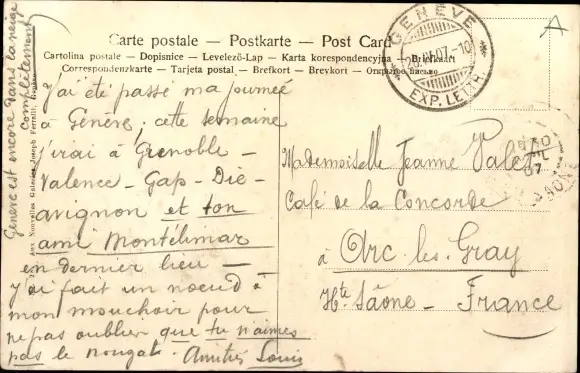 Carte postale — Postkarte — Post Card
Cartolina postale — Dopisnice — Levelező-Lap — Karta korespondencyjna — Briefkaart
Correspondenzkarte — Tarjeta postal — Brefkort — Brevkort —
GENÈVE
07-10
EXP. LETTR.
A
J'ai été passé ma journée
à Genève; cette semaine
j'irai à Grenoble —
Valence — Gap — Dié —
avignon et ton
ami Montélimar
en dernier lieu —
j'ai fait un noeud à
mon mouchoir pour
ne pas oublier que tu n'aimes
pas le nougat. Amitiés Louis
Genève est encore dans la neige
complètement
Aux Nouvelles Galeries, Joseph
Mademoiselle Jeanne
Café de la Concorde
à Arc-les-Gray
Hte Saône — France